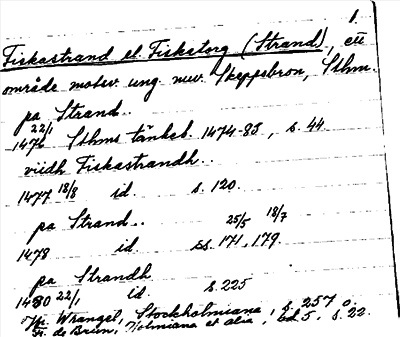 1.
Fiskastrand el. Fiskatorg (Strand), ett
område motsv. ung. nuv. Skeppsbron, Sthm.
pa Strand..
1476 22/1 Sthms tänkeb. 1474-83, s. 44.
viidh Fiskastrandh..
1477 18/8 id. s. 120.
pa Strand..
1478 id. ss. 171, 179. 25/5 18/7
pa Strandh
1480 22/1 id. s. 225
F. U. Wrangel, Stockholmiana, s. 257 o.
F. de Brun, Holmiana et alia, bd 5, s. 22.